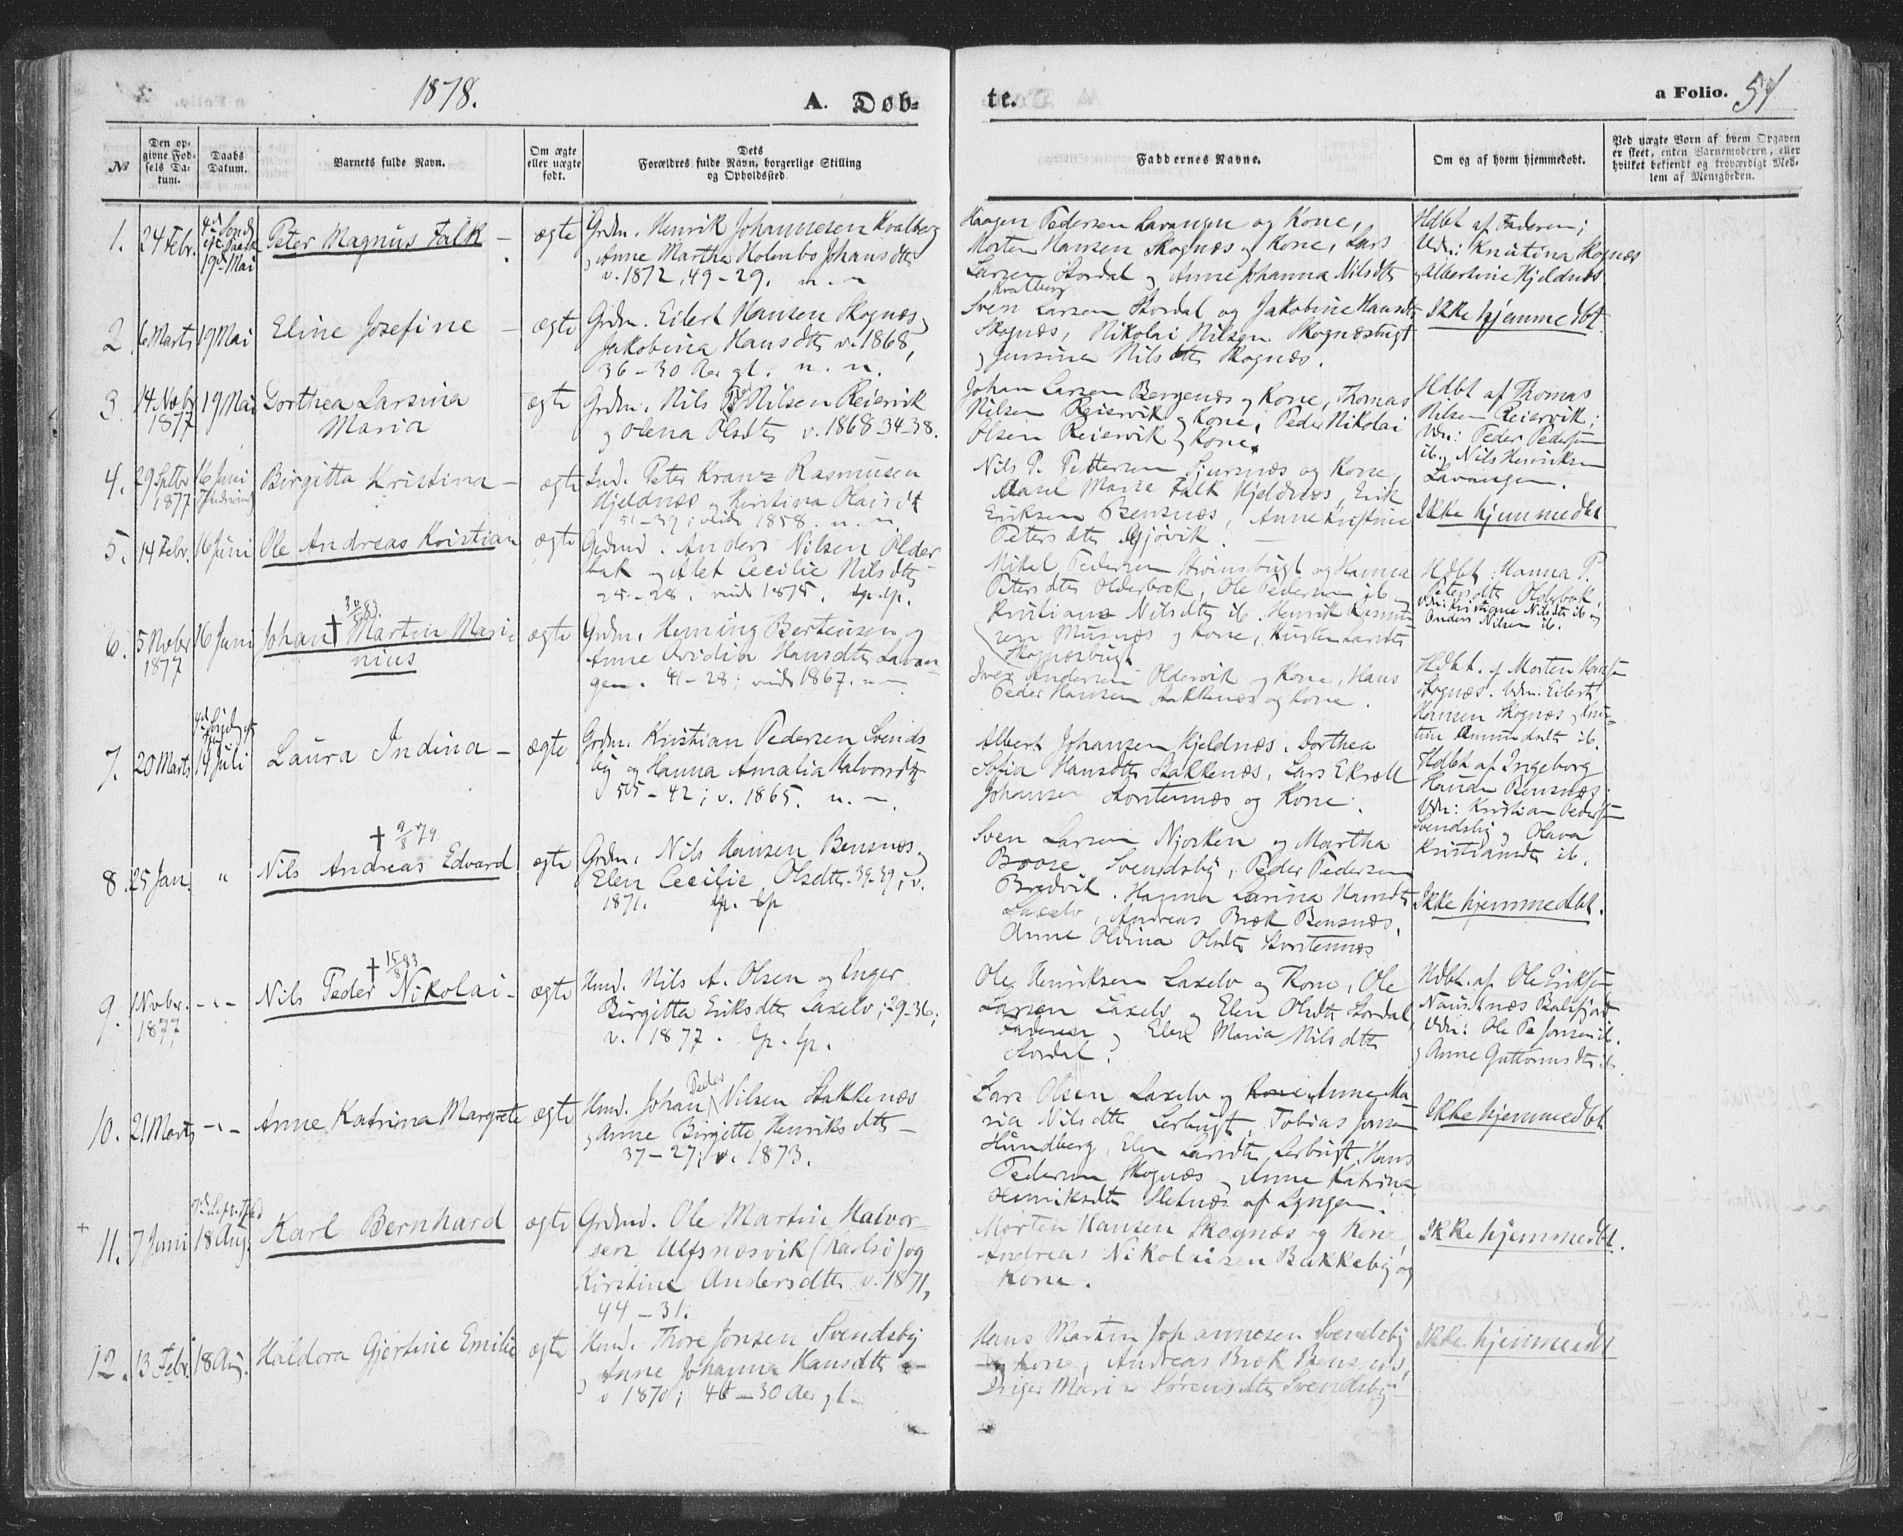 1878.
A. Døb-
te.
a Folio. 51
№
Den op-
givne Fød-
sels Da-
tum.
Daabs
Datum.
Barnets fulde Navn.
Om ægte
eller uægte
født.
Dets
Forældres fulde Navn, borgerlige Stilling
og Opholdssted.
Faddernes Navne.
Om og af hvem hjemmedøbt.
Ved uægte Børn af hvem Opgaven
er skeet, enten Barnemoderen, eller
hvilket bekjendt og troværdigt Med-
lem af Menigheden.
1.
24 Febr.
19 Mai
Peter Magnus Falk
ægte
Grdm. Henrik Johannesen Kvalberg
Anne Martha Holmbo Johansdtr
v. 1872, 49-29.
Haagen Pedersen Lavangen og Kone,
Morten Hansen Skognæs og Kone, Lars
Larsen Stordal og Anne Johanna Nilsdtr
Kvalberg
Hdbt af Faderen;
Vdn: Knutina Skognæs
Albertine Hjeldnæs
2
6 Marts
19 Mai
Eline Josefine
ægte
Grdm. Eilert Hansen Skognæs,
Jakobina Hansdtr v. 1868,
36-30 der gl.
Sven Larsen Stordal og Jakobine Hansdtr
Skognæs, Nikolai Nilsen Skognæsbugt
Jensina Nilsdtr Skognæs.
Ikke hjemmedbt.
3.
14 Novbr
1877
19 Mai
Dorthea Larsina
Maria
ægte
Grdm. Nils Nilsen Reiervik
og Olena Olsdtr v. 1868-34-38.
Johan Larsen Bergenæs og Kone, Thomas
Nilsen Reiervik og Kone, Peder Nikolai
Olsen Reiervik og Kone.
Hdbt af Thomas
Nilsen Reiervik;
Vdn: Peder Pedersen
ib. og Nils Henriksen
Lavangen.
4.
29 Sptbr
1877
16 Juni
Birgitta Kristina
ægte
Ind. Peter Kranz Rasmusen
Hjeldnæs og Kristina Olaisdt
51-39; viede 1858.
Nils P. Pettersen Sjursnæs og Kone,
Marie Falk Hjeldnæs, Erik
Eriksen Bensnæs, Anne Kristine
Petersdtr Gjøvik.
Ikke hjemmedbt
5.
14 Febr.
16 Juni
Ole Andreas Kristian
ægte
Grdmd. Anders Nilsen Older
bak og Alet Cecilie Nilsdtr
25-28. viede 1875.
Mikel Pedersen Strømsbugt og Hanna
Petersdtr Olderbak, Ole Pedersen ib
Kristiane Nilsdtr ib.
Hdbt: Hanna P.
Petersdtr Olderbak,
Vdn: Kristiane Nilsdtr ib og
Anders Nilsen ib.
6.
5 Novbr
1877
16 Juni
† 83.
Johan Martin Mari
nius
ægte
Grdm. Heming Bertensen og
Anne Hansdtr Lavan
gen. 41-28; viede 1867.
Henrik Rasmu
sen Musnæs og Kone, Kirsten Larsdtr
Skognæsbugt
Iver Andersen Oldervik og Kone, Hans
Peder Hansen Stakkenæs og Kone.
Hdbt. af Morten Hansen
Skognæs. Vdn: Eilert
Hansen Skognæs og Knu-
tine Amundsdtr ib.
7.
20 Marts
14 Juli
Laura Indina
ægte
Grdm. Kristian Pedersen Svends
by og Hanna Amalia Halvorsdtr
55-42; v. 1865.
Albert Johansen Hjeldnæs, Dorthea
Sofia Hansdtr Stakkenæs, Lars Ekroll
Johansen Storstennæs og Kone.
Hdbt af Ingeborg
Hansen Bensnæs;
Vdn: Kristian Pedersen
Svendsby og Olava
Kristiansdtr ib.
8.
25 Jan.
"
† 9/8 79.
Nils Andreas Edvard
ægte
Grdm. Nils Hansen Bensnæs
Elen Cecilie Olsdtr 39-39; v.
1871.
Sven Larsen Njosken og Martha
Svendsby, Peder Pedersen
Bredvik. Hanna Larina Hansdtr
Laxelv, Andreas Bræk Bensnæs,
Anne Oldina Olsdtr Storstennæs
Ikke hjemmedbt.
9.
1 Novbr.
1877
† 15/8 83
Nils Peder Nikolai
ægte
Hmd. Nils A. Olsen og Inger
Birgitta Eriksdtr Laxelv; 29-36;
v. 1877.
Ole Henriksen Laxelv og Kone, Ole
Larsen Laxelv og Elen Olsdtr Stordal,
Faderen og Elen Maria Nilsdtr
Stordal.
Hdbt. af Ole Eriksen
Naustnæs Balsfjord
Vdn: Ole P. Jonsen ib.
Anne Guttormsdtr ib
10.
21 Marts
Anne Katrina Margrete
ægte
Hmd. Johan Peder Nilsen Stakkenæs
Anne Birgitte Henriksdtr
37-27; v. 1873.
Lars Olsen Laxelv og Kone, Anne Ma
ria Nilsdtr Lerbugt, Tobias Jonsen
Hundberg, Elen Larsdtr Lerbugt, Hans
Pedersen Skognæs Anne Katrina
Henriksdtr Sletnæs af Lyngen.
Ikke hjemmedbt
11.
7 Juni
18 Aug.
Karl Bernhard
ægte
Grdmd. Ole Martin Halvor-
sen Ulfsnæsvik (Karlsø) og
Kirstine Andersdtr v. 1871,
44-31.
Morten Hansen Skognæs og Kone,
Andreas Nikolaisen Bakkeby og
Kone.
Ikke hjemmedbt.
12.
13 Febr.
18 Aug.
Haldora Gjertine Emilie
ægte
Hmd. Thore Jonsen Svendsby
Anne Johanna Hansdtr
v 1870; 46-30 der gl.
Hans Martin Johannesen Svendsby
og Kone, Andreas Bræk Bensnæs,
Inger Marie Sørensdtr Svendsby
Ikke hjemmedbt